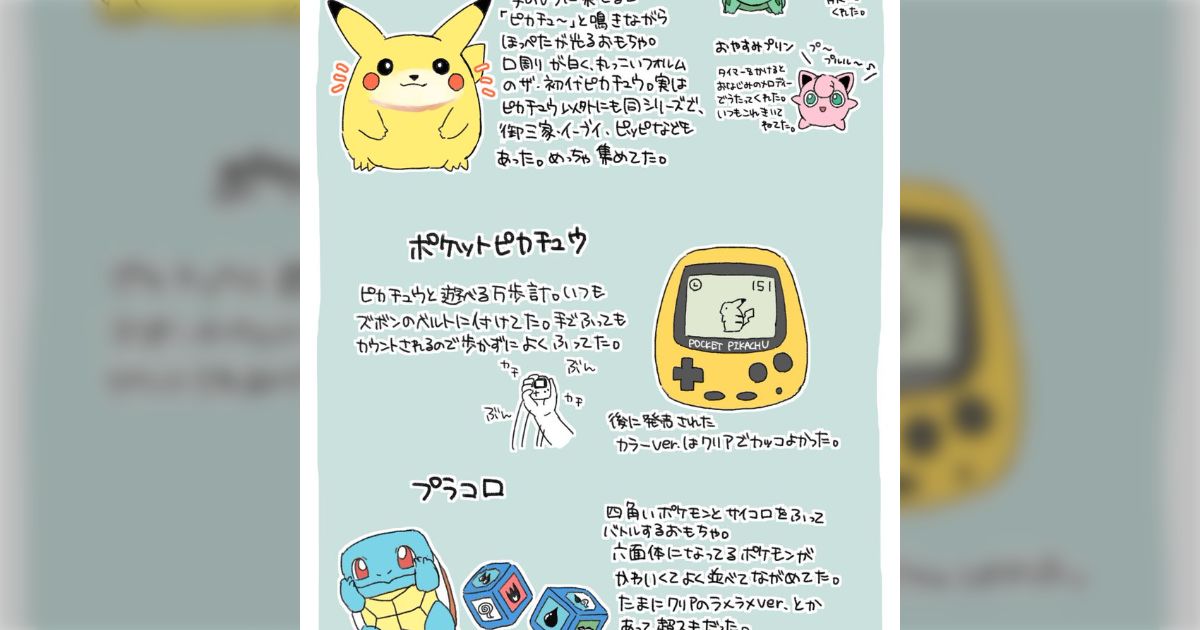 「ピカチュ～」と鳴きながら
ほっぺたが光るおもちゃ。
口周りが白く、丸っこいフォルム
のザ・初代ピカチュウ。実は
ピカチュウ以外にも同シリーズで、
御三家・イーブイ、ピッピなども
あった。めっちゃ集めてた。
くれた。
おやすみプリン
プ～
プルル～♪
タイマーをかけると
おなじみのメロディー
でうたってくれた。
いつもこれきいて
ねてた。
ポケットピカチュウ
ピカチュウと遊べる万歩計。いつも
ズボンのベルトに付けてた。手でふっても
カウントされるので歩かずによくふってた。
カチ
ぶん
ぶん
カチ
151
POCKET PIKACHU
後に発売された
カラーver.はクリアでカッコよかった。
プラコロ
四角いポケモンとサイコロをふって
バトルするおもちゃ。
六面体になってるポケモンが
かわいくてよく並べてながめてた。
たまにクリアのラメラメver.とか
あって超スキだった。